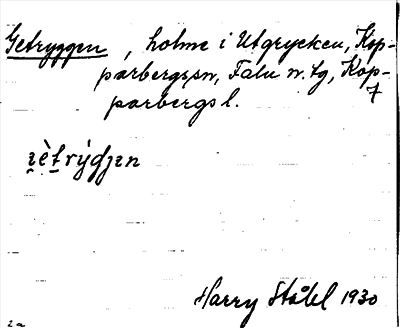 Getryggen, holme i Utgrycken, Kop-
parbergs sn, Falu n. tg, Kop-
parbergs l.
7
Harry Ståhl 1930
2a